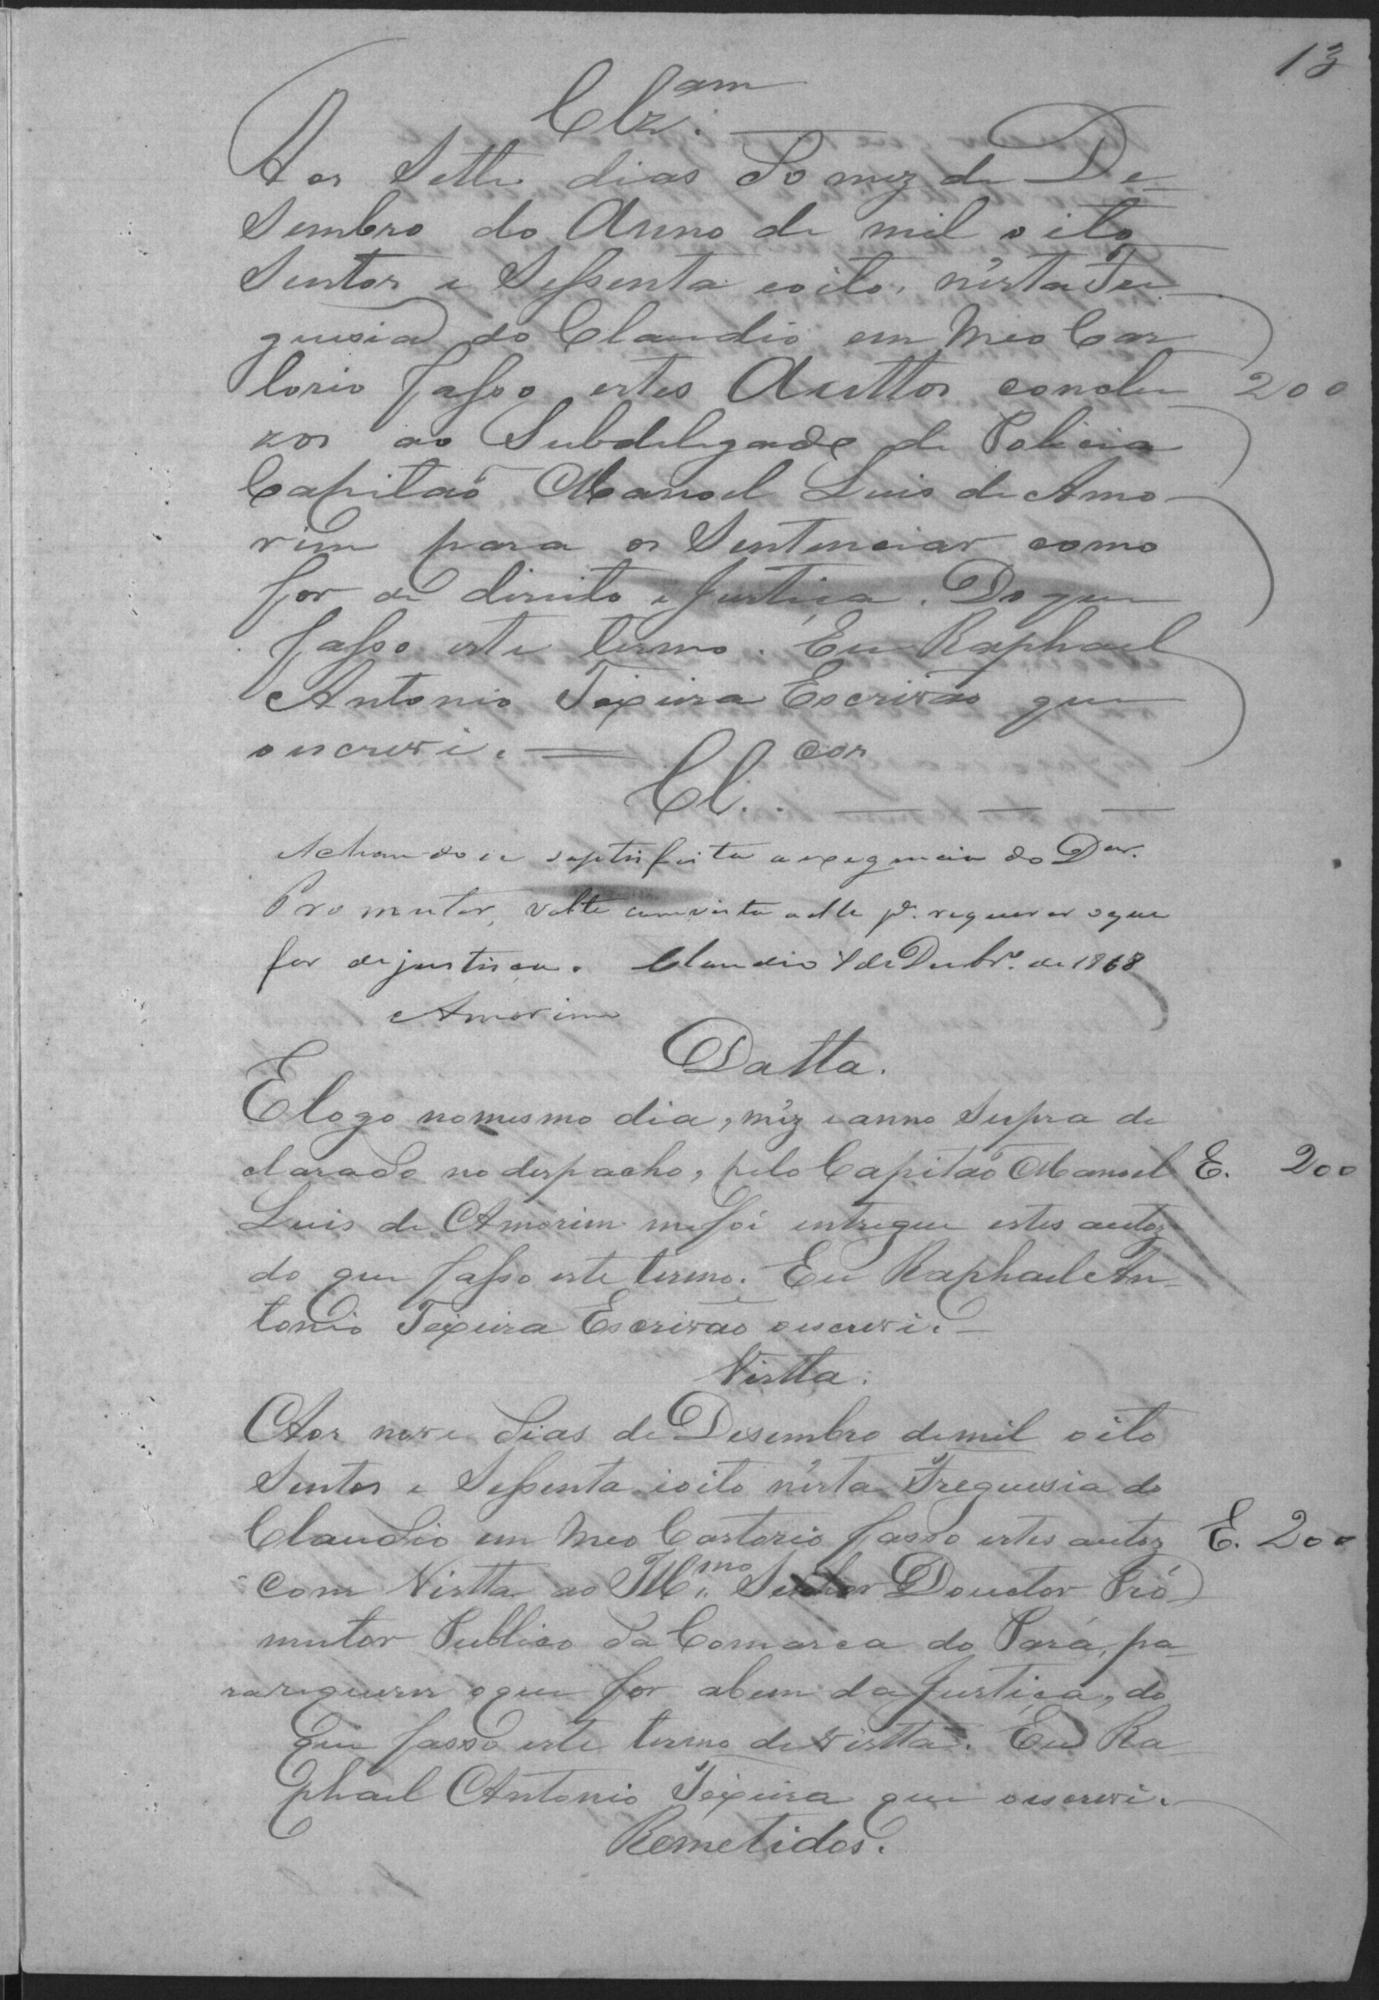 13
Clz.am
Aos Sette dias do mez de De-
sembro do Anno de mil oito
Sentos e Sessenta eoito, nésta Fre
guesia do Claudio em Meo Car
torio fasso estes Auttos conclu 200
zos ao Subdelegado de Policia
Capitaõ Manoel Luis de Amo-
rim para os Sentenciar como
for de direito e Justiça. Do que
fasso este termo. Eu Raphael
Antonio Teixeira Escrivaõ que
o escrevi. =
Cl.os
Achando se sastisfeita a exegencia do Dor.
Promutor, volte com vista a elle pa. requerer o que
for de justisa. Claudio 7 de Dezbro. de 1868
Amorim
Datta.
E logo no mesmo dia, mêz e anno Supra de
clarado no despacho, pelo Capitaõ Manoel E. 200
Luis de Amorim me foi entregue estes autos
do que fasso este termo. Eu Raphael An-
tonio Teixeira Escrivaõ o escrevi. -
Vistta.
Aos nove dias de Desembro de mil oito
Sentos e Sessenta eoito nésta Freguesia do
Claudio em Meo Cartorio fasso estes autos E. 200
com Vistta ao Illmo. Senhor Douctor Pró
mutor Publico da Comarca do Pará, pa-
ra requerer o que for abem da Justiça, do
que fasso este termo de vistta. Eu Ra
phael Antonio Teixeira que o escrevi.
Remetidos.